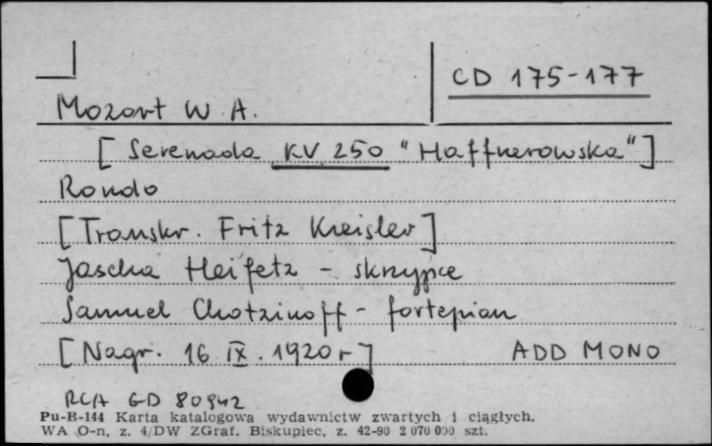 CD 175-177
Mozart W. A.
[Serenada KV 250 "Haffnerowska"]
Rondo
[Transkr. Fritz Kreisler]
Jascha Heifetz - skrzypce
Samuel Chotzinoff - fortepian
[Nagr. 16 IX. 1920 r]
ADD MONO
RCA GD 80942
Pu-B-144 Karta katalogowa wydawnictw zwartych i ciągłych.
WA O-n, z. 4/DW ZGraf. Biskupiec, z. 42-90 2 070 000 szt.